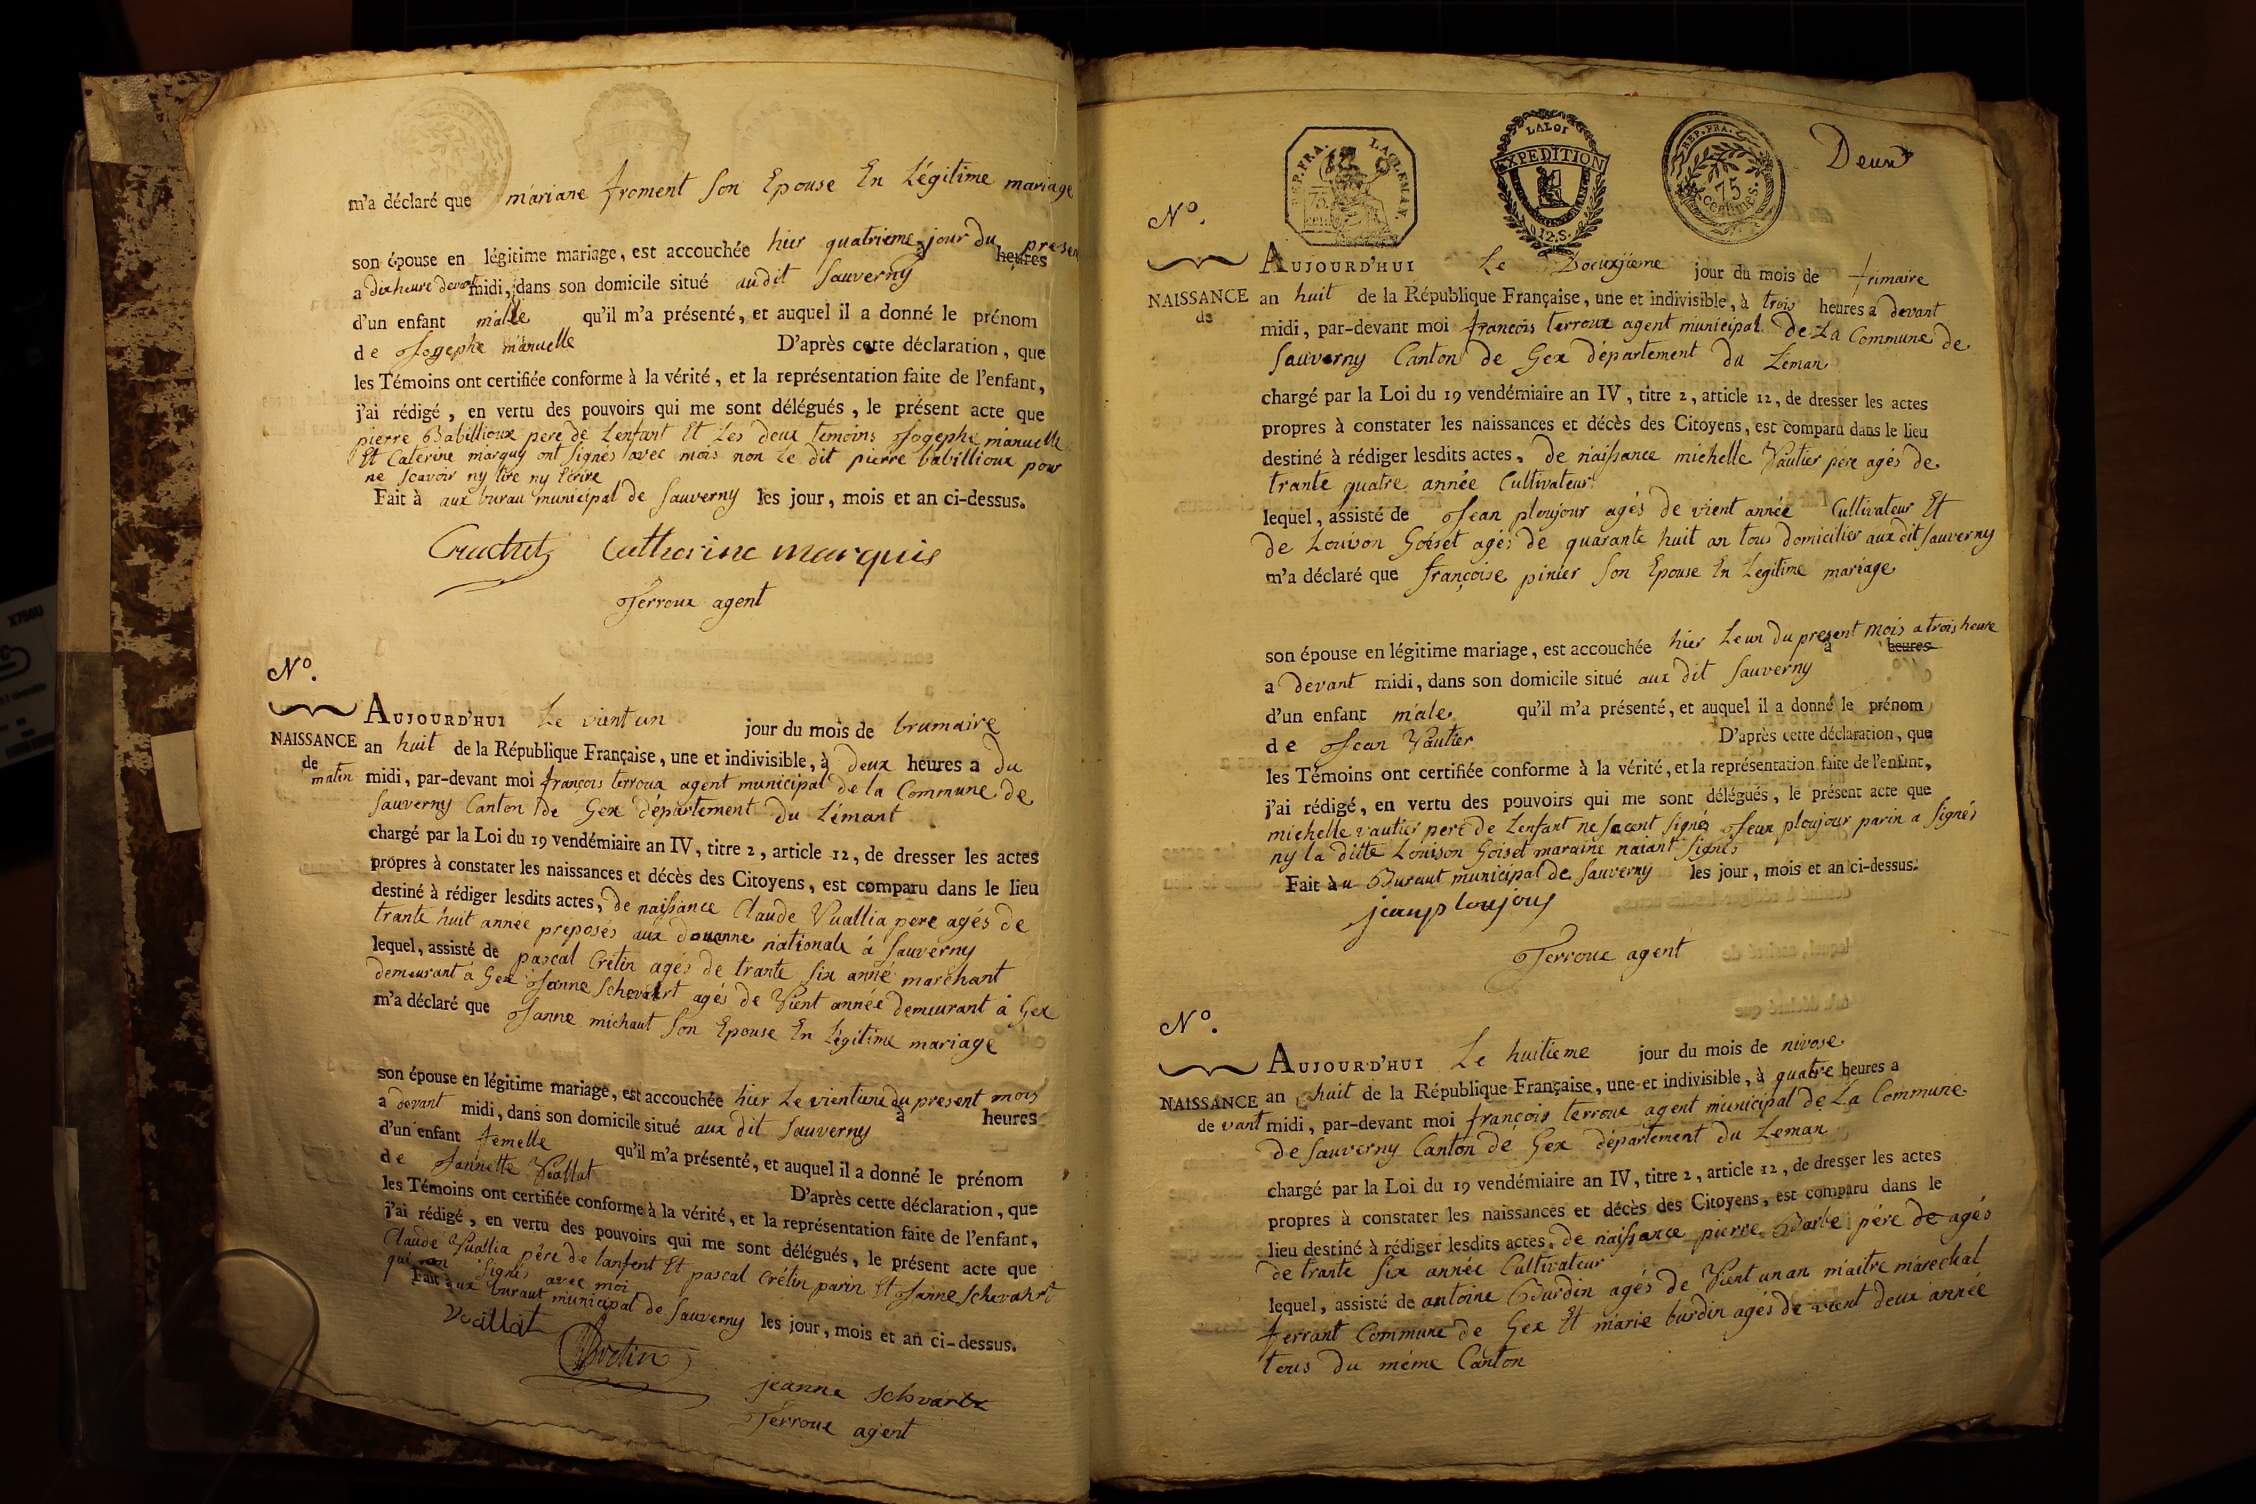 m'a déclaré que mariane froment son Epouse En Légitime mariage
son épouse en légitime mariage, est accouchée hier quatrieme jour du presen
à heures
a dix heure devant midi, dans son domicile situé audit Sauverny
d'un enfant malle qu'il m'a présenté, et auquel il a donné le prénom
de Jogephe mánuelle D'après cette déclaration, que
les Témoins ont certifiée conforme à la vérité, et la représentation faite de l'enfant,
j'ai rédigé, en vertu des pouvoirs qui me sont délégués, le présent acte que
pierre Babillioux pere de Lenfant Et Les deux temoins Jogephe mánuelle
Et Caterine marquy ont signés avec mois non Le dit pierre babillioux pour
ne scavoir ny lire ny Ecrire
Fait à aux burau municipal de Sauverny les jour, mois et an ci-dessus.
Catherine marquis
Terroux agent
N°.
AUJOURD'HUI Le vient un jour du mois de brumaire
NAISSANCE an huit de la République Française, une et indivisible, à deux heures a du
de matin midi, par-devant moi françois terroux agent municipal de la Commune de
Sauverny Canton de Gex département du Lémant
chargé par la Loi du 19 vendémiaire an IV, titre 2, article 12, de dresser les actes
propres à constater les naissances et décès des Citoyens, est comparu dans le lieu
destiné à rédiger lesdits actes, de naissance Claude Vuallia pere agés de
trante huit année préposés aux douanne nationale á Sauverny
lequel, assisté de pascal Crétin agés de trante six anné marchant
demeurant a Gex Janne Schevahrt agés de Vient année demeurant á Gex
m'a déclaré que Janne michaut son Epouse En Légitime mariage
son épouse en légitime mariage, est accouchée hier Le vientiene du present mois
à heures
a devant midi, dans son domicile situé aux dit Sauverny
d'un enfant femelle qu'il m'a présenté, et auquel il a donné le prénom
de Jannette Vuallat D'après cette déclaration, que
les Témoins ont certifiée conforme à la vérité, et la représentation faite de l'enfant,
j'ai rédigé, en vertu des pouvoirs qui me sont délégués, le présent acte que
Claude Vuallia pére de lanfent Et pascal Crétin parin Et Janne Schevahrt
qui on signés avec moi
Fait à aux buraut municipal de Sauverny les jour, mois et an ci-dessus.
Vuallat
Cretin
jeanne Schvartz
Terroux agent
REP. FRA. LAGLEMAN.
75 cen
LA LOI
EXPEDITION
12.S.
REP. FRA.
75
centimes.
Deux
N°.
AUJOURD'HUI Le Doeuxjieme jour du mois de frimaire
NAISSANCE an huit de la République Française, une et indivisible, à trois heures a devant
de midi, par-devant moi françois terroux agent municipal de La Commune de
Sauverny Canton de Gex département du Léman
chargé par la Loi du 19 vendémiaire an IV, titre 2, article 12, de dresser les actes
propres à constater les naissances et décès des Citoyens, est comparu dans le lieu
destiné à rédiger lesdits actes, de naissance michelle Vautier pére agés de
trante quatre année Cultivateur
lequel, assisté de Jean ploujour agés de vient année Cultivateur Et
de Louison Goiset agés de quarante huit an tous domicilier aux dit Sauverny
m'a déclaré que françoise pinier son Epouse En Légitime mariage
son épouse en légitime mariage, est accouchée hier Le un du present mois a trois heure
à heures
a devant midi, dans son domicile situé aux dit Sauverny
d'un enfant male qu'il m'a présenté, et auquel il a donné le prénom
de Jean Vautier D'après cette déclaration, que
les Témoins ont certifiée conforme à la vérité, et la représentation faite de l'enfant,
j'ai rédigé, en vertu des pouvoirs qui me sont délégués, le présent acte que
michelle vautier pere de Lenfant ne sacent signés Jean ploujour parin a signés
ny la ditte Louison Goiset maraine naiant signés
Fait à u Buraut municipal de Sauverny les jour, mois et an ci-dessus.
jean ploujour
Terroux agent
N°.
AUJOURD'HUI Le huitieme jour du mois de nivose
NAISSANCE an huit de la République Française, une et indivisible, à quatre heures a
de vant midi, par-devant moi françois terroux agent municipal de La Commune
de Sauverny Canton de Gex département du Leman
chargé par la Loi du 19 vendémiaire an IV, titre 2, article 12, de dresser les actes
propres à constater les naissances et décès des Citoyens, est comparu dans le
lieu destiné à rédiger lesdits actes, de naissance pierre Barbe pére de agés
de trante six année Cultivateur
lequel, assisté de antoine Burdin agés de Vient un an maitre maréchal
ferrant Commune de Gex Et marie burdin agés de vient deux année
tous du méme Canton